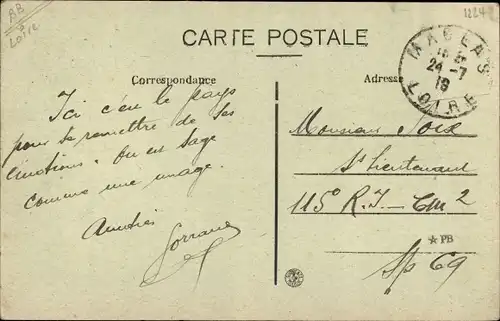 AB
Loire
CARTE POSTALE
Correspondance
Adresse
MACLAS
24-7
18
LOIRE
Ici c'est le pays
pour se remettre de ses
émotions. On est sage
comme une image.
Amitiés
Lorraine
Monsieur
St Lieutenant
115° R.I - CM 2
★ PB
Sp 69